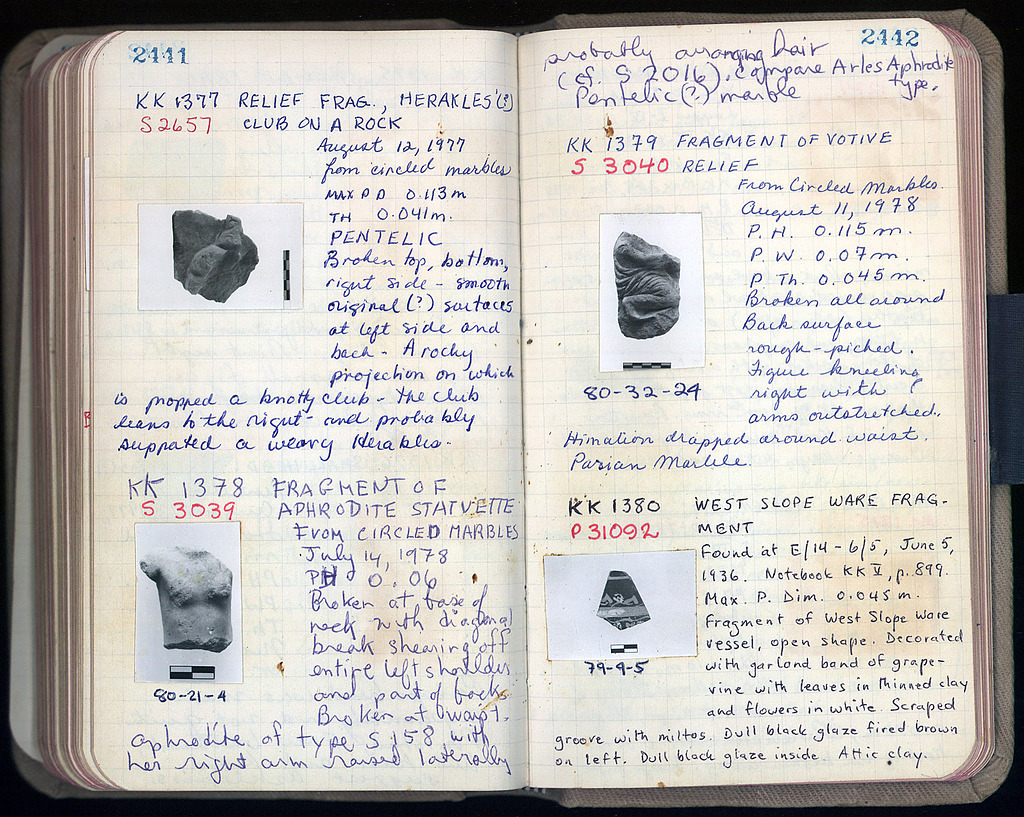 2441
KK 1377 RELIEF FRAG., HERAKLES'(?)
S 2657 CLUB ON A ROCK
August 12, 1977
from circled marbles
MAX P D 0.113 m
TH 0.041 m.
PENTELIC
Broken top, bottom,
right side - smooth
original (?) surfaces
at left side and
back - A rocky
projection on which
is propped a knotty club - the club
leans to the right - and probably
supprated a weary Herakles.
KK 1378 FRAGMENT OF
S 3039 APHRODITE STATVETTE
FROM CIRCLED MARBLES
July 14, 1978
PH 0.06
Broken at base of
neck with diagonal
break shearing off
entire left shoulder
and part of back
Broken at waist.
80-21-4
aphrodite of type S 158 with
her right arm raised laterally
2442
probably arranging hair
(cf. S 2016). Compare Arles Aphrodite
type.
Pentelic (?) marble
KK 1379 FRAGMENT OF VOTIVE
S 3040 RELIEF
From Circled Marbles.
August 11, 1978
P. H. 0.115 m.
P. W. 0.07 m.
P Th. 0.045 m.
Broken all around
Back surface
rough-picked.
Figure kneeling
right with
arms outstretched.
80-32-24
Himation drapped around waist.
Parian Marble.
KK 1380 WEST SLOPE WARE FRAG-
P 31092 MENT
Found at E/14-6/5, June 5,
1936. Notebook KK V, p. 899.
Max. P. Dim. 0.045 m.
Fragment of West Slope Ware
vessel, open shape. Decorated
with garland band of grape-
vine with leaves in thinned clay
and flowers in white. Scraped
79-9-5
groove with miltos. Dull black glaze fired brown
on left. Dull black glaze inside. Attic clay.